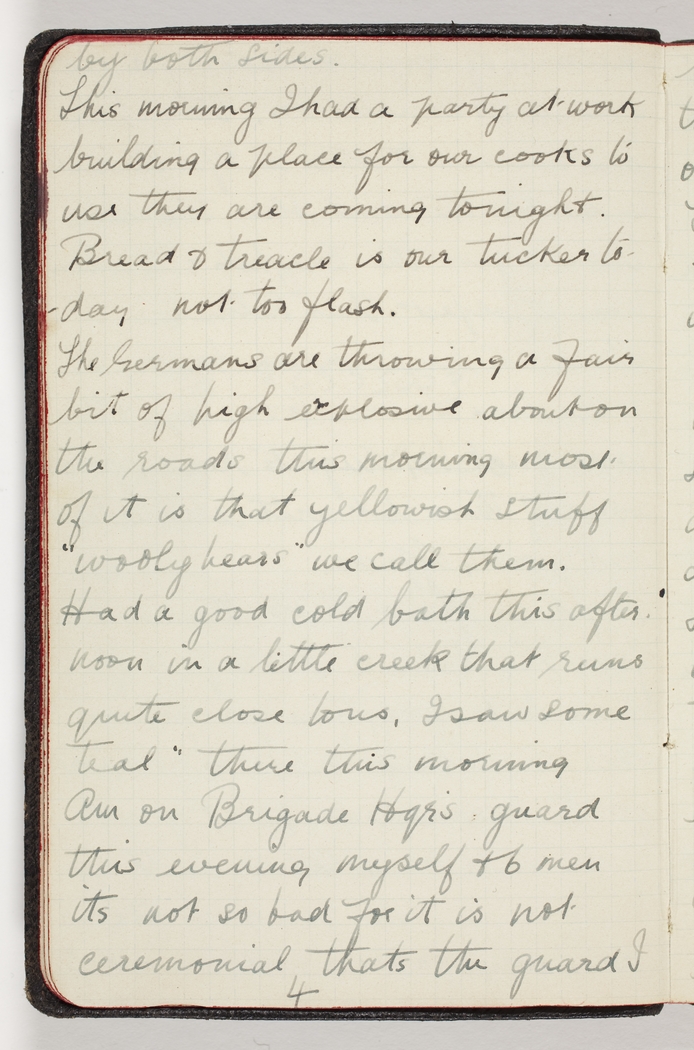 by both sides.
This morning I had a party at work
building a place for our cooks to
use they are coming tonight.
Bread & treacle is our tucker to-
-day not too flash.
The Germans are throwing a fair
bit of high explosive about on
the roads this morning most
of it is that yellowish stuff
"wooly bears" we call them.
Had a good cold bath this after.
noon in a little creek that runs
quite close to us, I saw some
teal" there this morning
Am on Brigade Hqrs. guard
this evening myself & 6 men
its not so bad for it is not
ceremonial thats the guard I
4